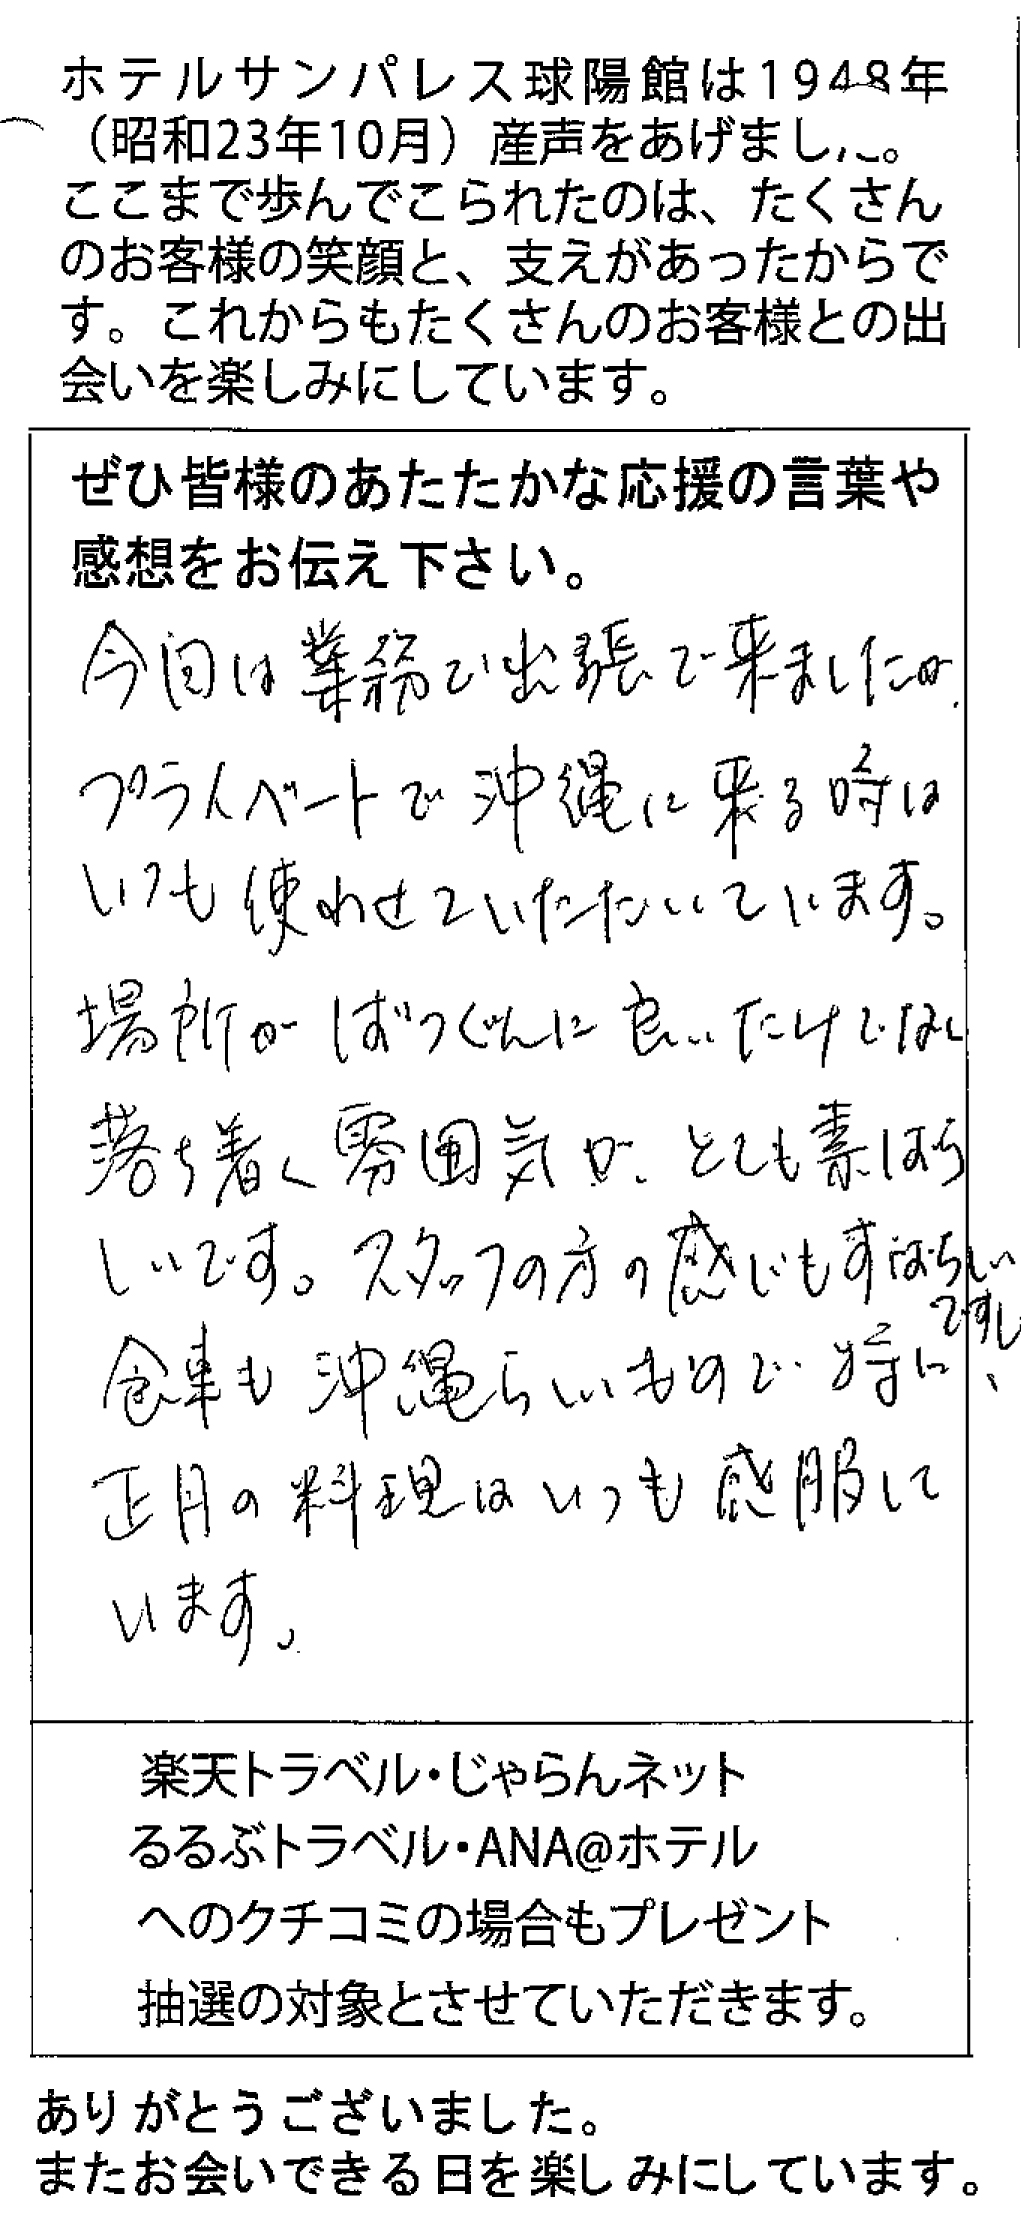 ホテルサンパレス球陽館は1948年
（昭和23年10月）産声をあげました。
ここまで歩んでこられたのは、たくさん
のお客様の笑顔と、支えがあったからで
す。これからもたくさんのお客様との出
会いを楽しみにしています。
ぜひ皆様のあたたかな応援の言葉や
感想をお伝え下さい。
今回は業務で出張で来ましたが、
プライベートで沖縄に来る時は
いつも使わせていただいています。
場所がばつぐんに良いだけでなく
落ち着く雰囲気が、とても素ばら
しいです。スタッフの方の感じもすばらしい
ですし、
食事も沖縄らしいもので特に
正月の料理はいつも感服して
います。
楽天トラベル・じゃらんネット
るるぶトラベル・ANA@ホテル
へのクチコミの場合もプレゼント
抽選の対象とさせていただきます。
ありがとうございました。
またお会いできる日を楽しみにしています。